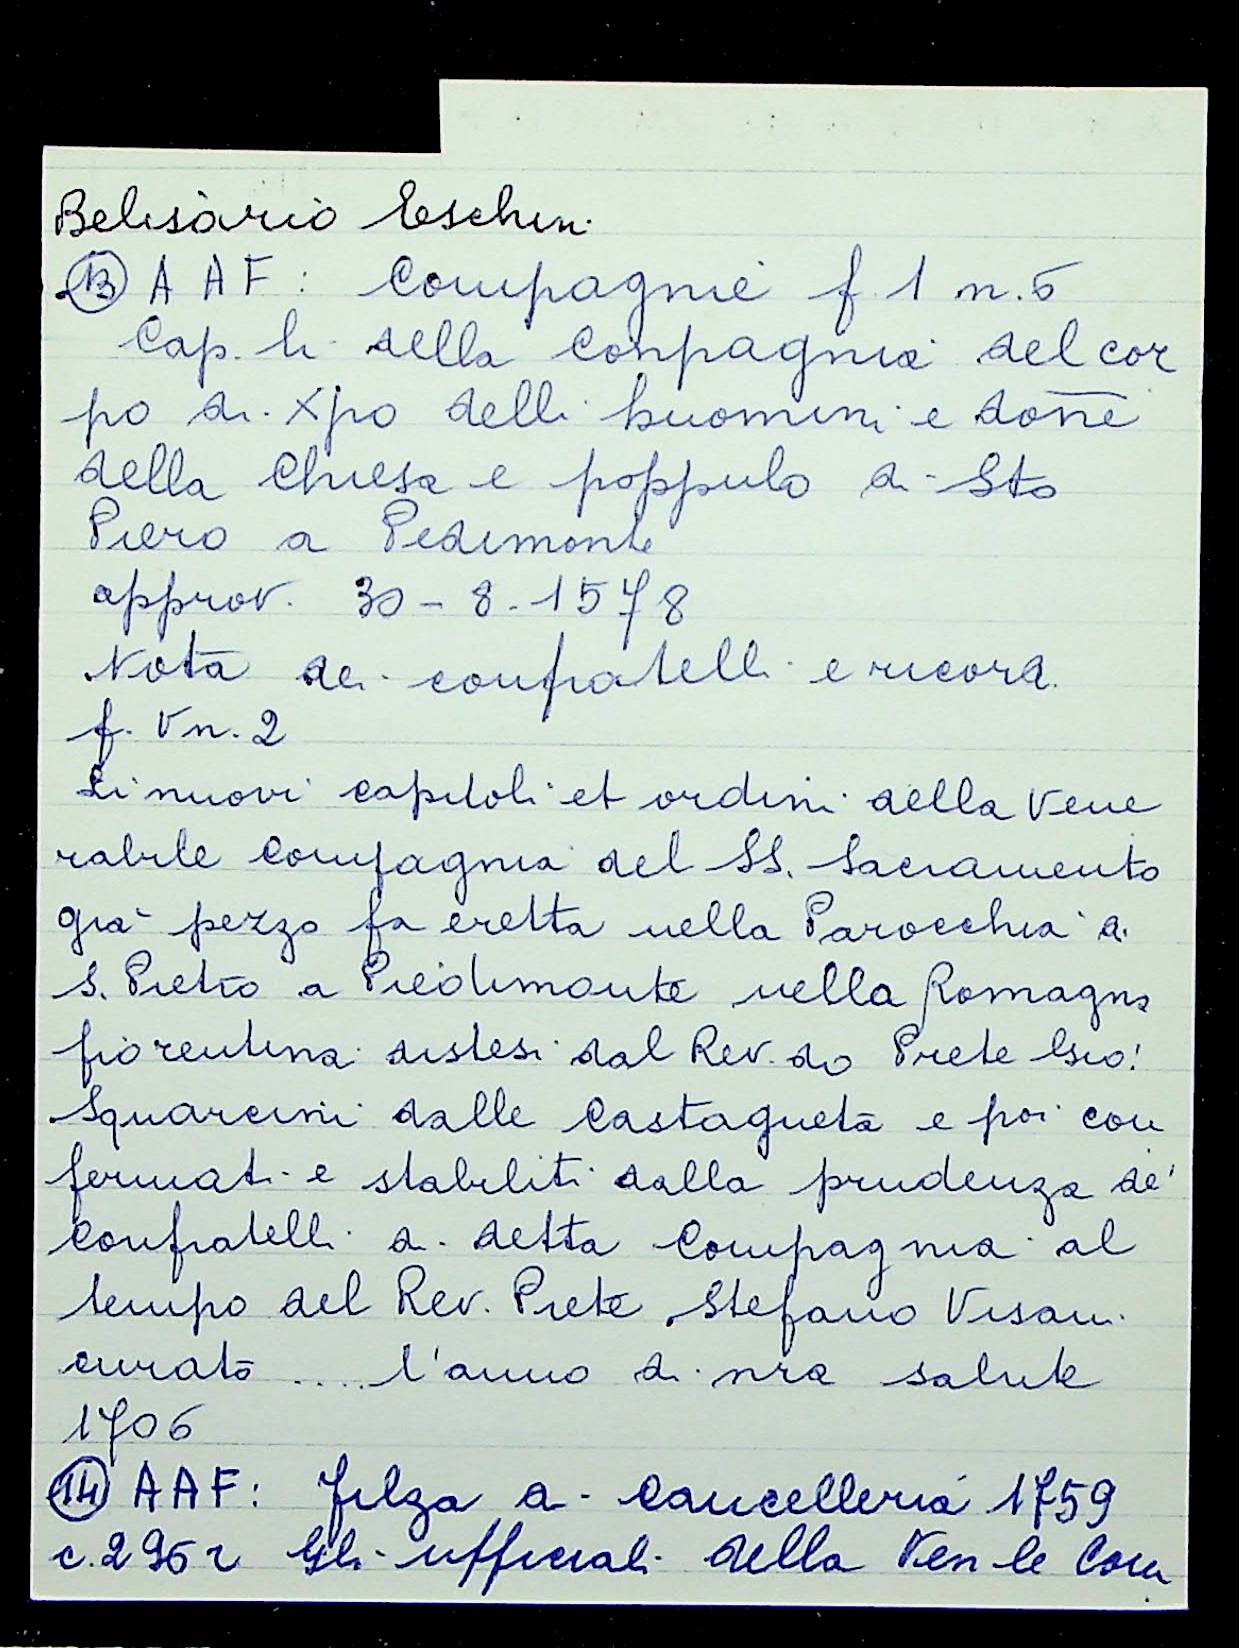 Belisario Eschini
(13) A A F: Compagnie f. 1 n. 6
Cap.li della Conpagnia del cor
po di Xpo delli huomini e donne
della Chiesa e poppulo di Sto
Piero a Pedimonte
approv. 30-8-1578
Nota dei confratelli e ricord.
f. V n. 2
Li nuovi capitoli et ordini della Vene
rabile Compagnia del SS. Sacramento
già pezzo fa eretta nella Parocchia di
S. Pietro a Piedimonte nella Romagna
fiorentina distesi dal Rev.do Prete Gio:
Squarcini dalle Castagneta e poi con
fermati e stabiliti dalla prudenza de'
Confratelli di detta Compagnia al
tempo del Rev. Prete Stefano Visani
curato .... l'anno di nra salute
1706
(14) A A F: Filza di Cancelleria 1759
c. 296 r Gli ufficiali della Ven le Com